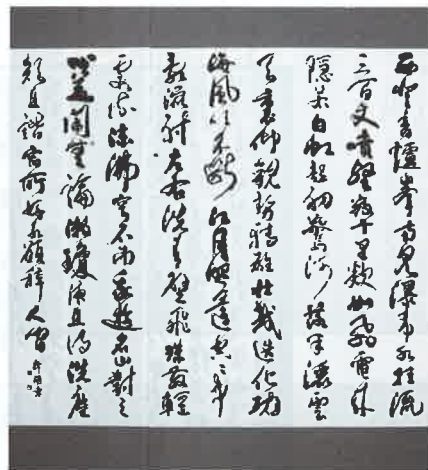 西登香爐峯南見瀑布水挂流
三百丈噴壑數十里欻如飛電来
隱若白虹起初驚河漢落半灑雲
天裏仰觀勢轉雄壯哉造化功
海風吹不斷江月照還空空中
亂潨射左右洗青壁飛珠散輕
霞流沫沸穹石而我遊名山對之
心益閒無論漱瓊液且得洗塵
顏且諧宿所好永願辭人間